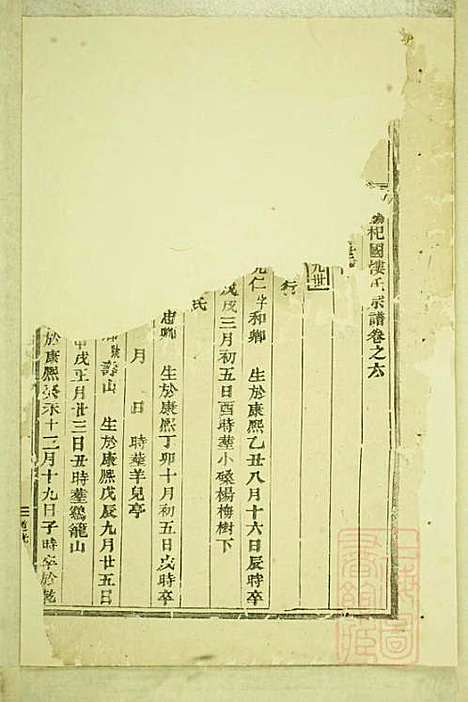 杞國婁氏宗譜卷之六
九世
行
光仁字和卿　生於康熙乙丑八月十六日辰時卒
戊戌三月初五日酉時塟小磉楊梅樹下
氏
忠卿　生於康熙丁卯十月初五日戊時卒
月　日　時塟羊兒亭
號壽山　生於康熙戊辰九月廿五日
甲戌正月廿三日丑時塟鷄籠山
於康熙癸未十二月十九日子時卒於乾